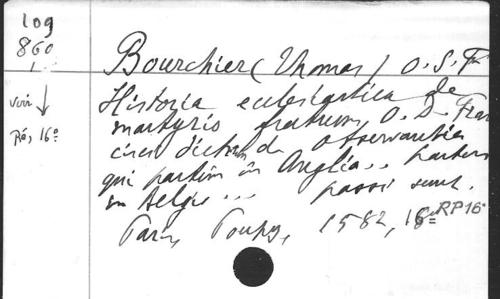 109
860
Bourchier (Thomas) O. S. Fr
Historia ecclesiastica de
martyrio fratrum O. D. Fran
cisci dictorum de observantia
qui partim in Anglia .. partim
in Belgio ... passi sunt.
voir
Ré, 16º
Paris, Poupy, 1582, 16º RP16